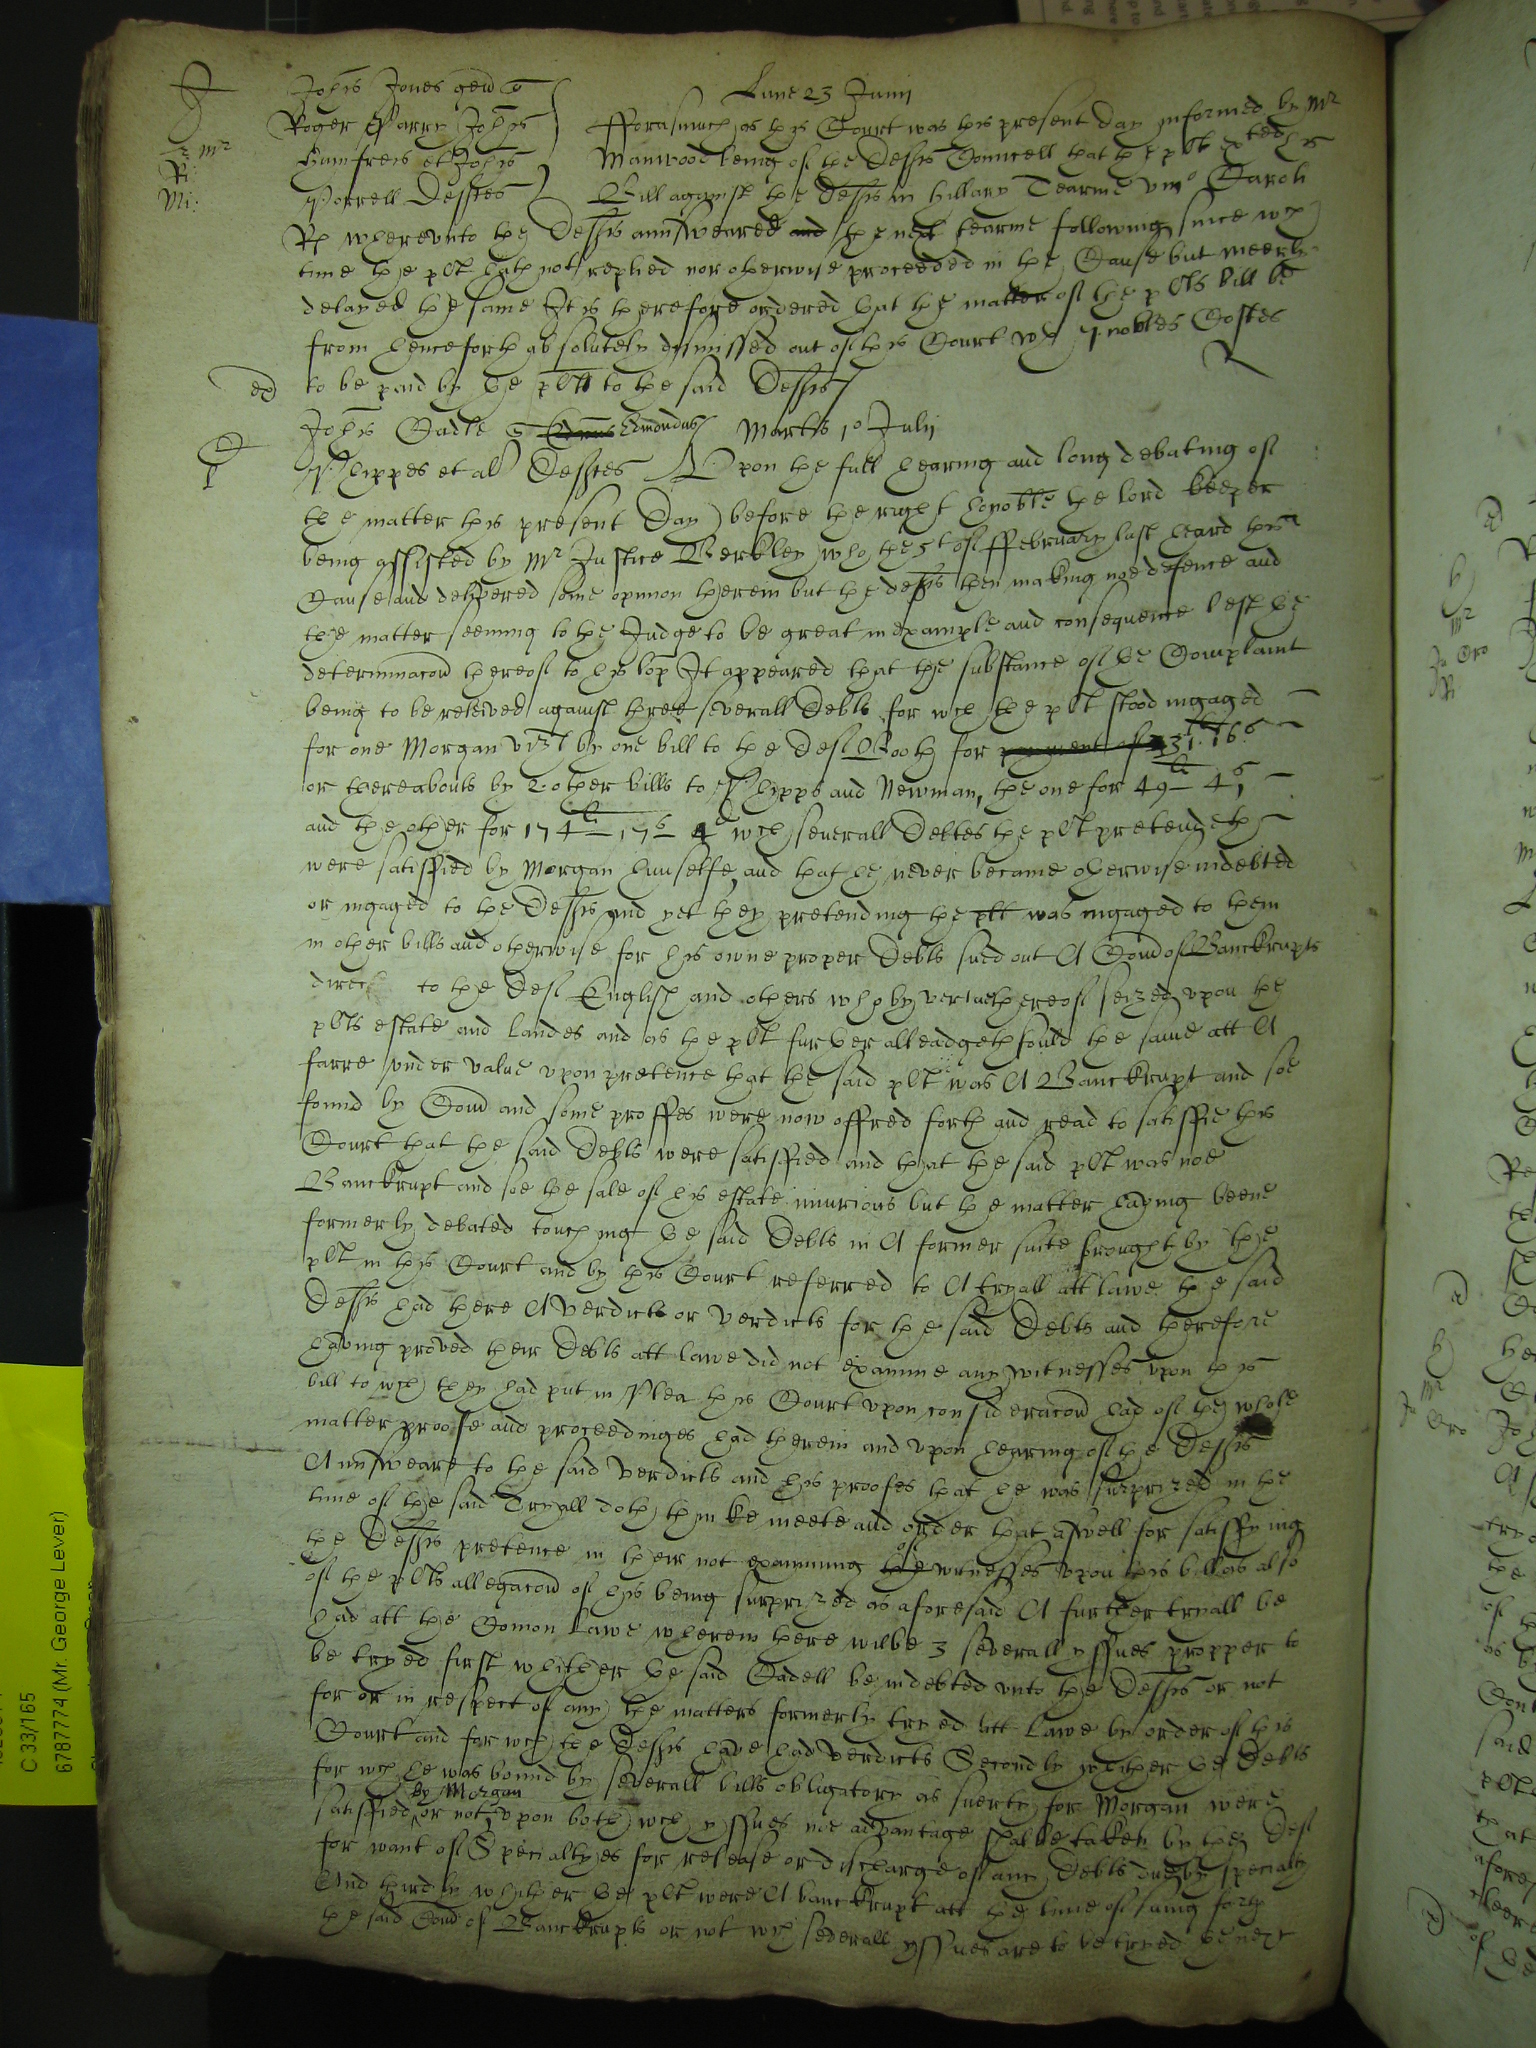 Lune 23 Junii
Johis Jones gen
Roger Parry Johis
Humfreis et Johis
Porrell Defftes
Mr
R:
Mi:
fforasmuch as this Court was this present day informed by Mr
Manwood being of the Defts Councell that the plt his
Bill against the Defts in Hillary Tearme viiio Caroli
Rs wherevnto the Defts aunsweared and the next tearme following since wch
time the plt hath not replied nor otherwise proceeded in the Cause but meerly
delayed the same It is therefore ordered that the matter of the plts bill be
from henceforth absolutely dismissed out of this Court wth nobles Costes
to be paid by the plt to the said Defts
R
Johis Cadle Edmondus Martis 1o Julii
Phippes et al Defftes Vpon the full hearing and long debating of
the matter this present Day before the right honoble the lord keeper
being assisted by Mr Justice Berkley who the 5t of ffebruary last heard this
Cause and delivered some opinion therein but the defts then making noe defence and
the matter seeming to the Judge to be great in example and consequence left the
determinacon thereof to his lop It appeared that the substance of the Complaint
being to be releived against three severall Debts for wch the plt stood ingaged
for one Morgan vizt by one bill to the Deft Booth for payment of 31li 16s
or thereabouts by 2 other bills to Phipps and Newman, the one for 49li 4s
and the other for 174li 17s 4d wch severall Debtes the plt pretendeth
were satisfied by Morgan himselfe, and that he never became otherwise indebted
or ingaged to the Defts and yet they pretending the plt was ingaged to them
in other bills and otherwise for his owne proper Debts sued out A Com of Banckrupts
direct to the Deft English and others who by vertue thereof seized vpon the
plts estate and landes and as the plt further alleadgeth sould the same att A
farre vnder value vpon pretence that the said plt was A Banckrupt and soe
found by Com and some proffes were now offred forth and read to satisfie this
Court that the said Debts were satisfied and that the said plt was noe
Banckrupt and soe the sale of his estate iniurious but the matter having beene
formerly debated touching the said Debts in A former suite brought by the
plt in this Court and by this Court referred to A tryall att lawe the said
Defts had there A verdict or verdicts for the said Debts and therefore
having proved their Debts att lawe did not examine any witnesses vpon this
bill to wch they had put in Plea this Court vpon consideracon had of the whole
matter proofe and proceedinges had therein and vpon hearing of the Defts
Aunsweare to the said verdicts and his proofes that he was surprized in the
time of the said Tryall doth thinke meete and order that aswell for satisfying
the Defts pretence in their not examining the of witnesses vpon this bill as also
of the plts allegacon of his being surprized as aforesaid A further tryall be
had att the Comon Lawe wherein there wilbe 3 severall yssues propper to
be tryed first whither the said Cadell be indebted vnto the Defts or not
for or in respect of any the matters formerly tryed att Lawe by order of this
Court and for wch the Defts have had verdicts Secondly whither the Debts
for wch he was bound by severall bills obligatory as suerty for Morgan were
satisfied by Morgan or not, vpon both wch yssues noe advantage shalbe taken by the Deft
for want of Specialtyes for release or discharge of any Debts due by specialty
And thirdly whither the plt were A banckrupt att the time of suing forth
the said Com of Banckrupts or not wch severall yssues are to be tryed the next
C 33/165
6787774 (Mr. George Lever)